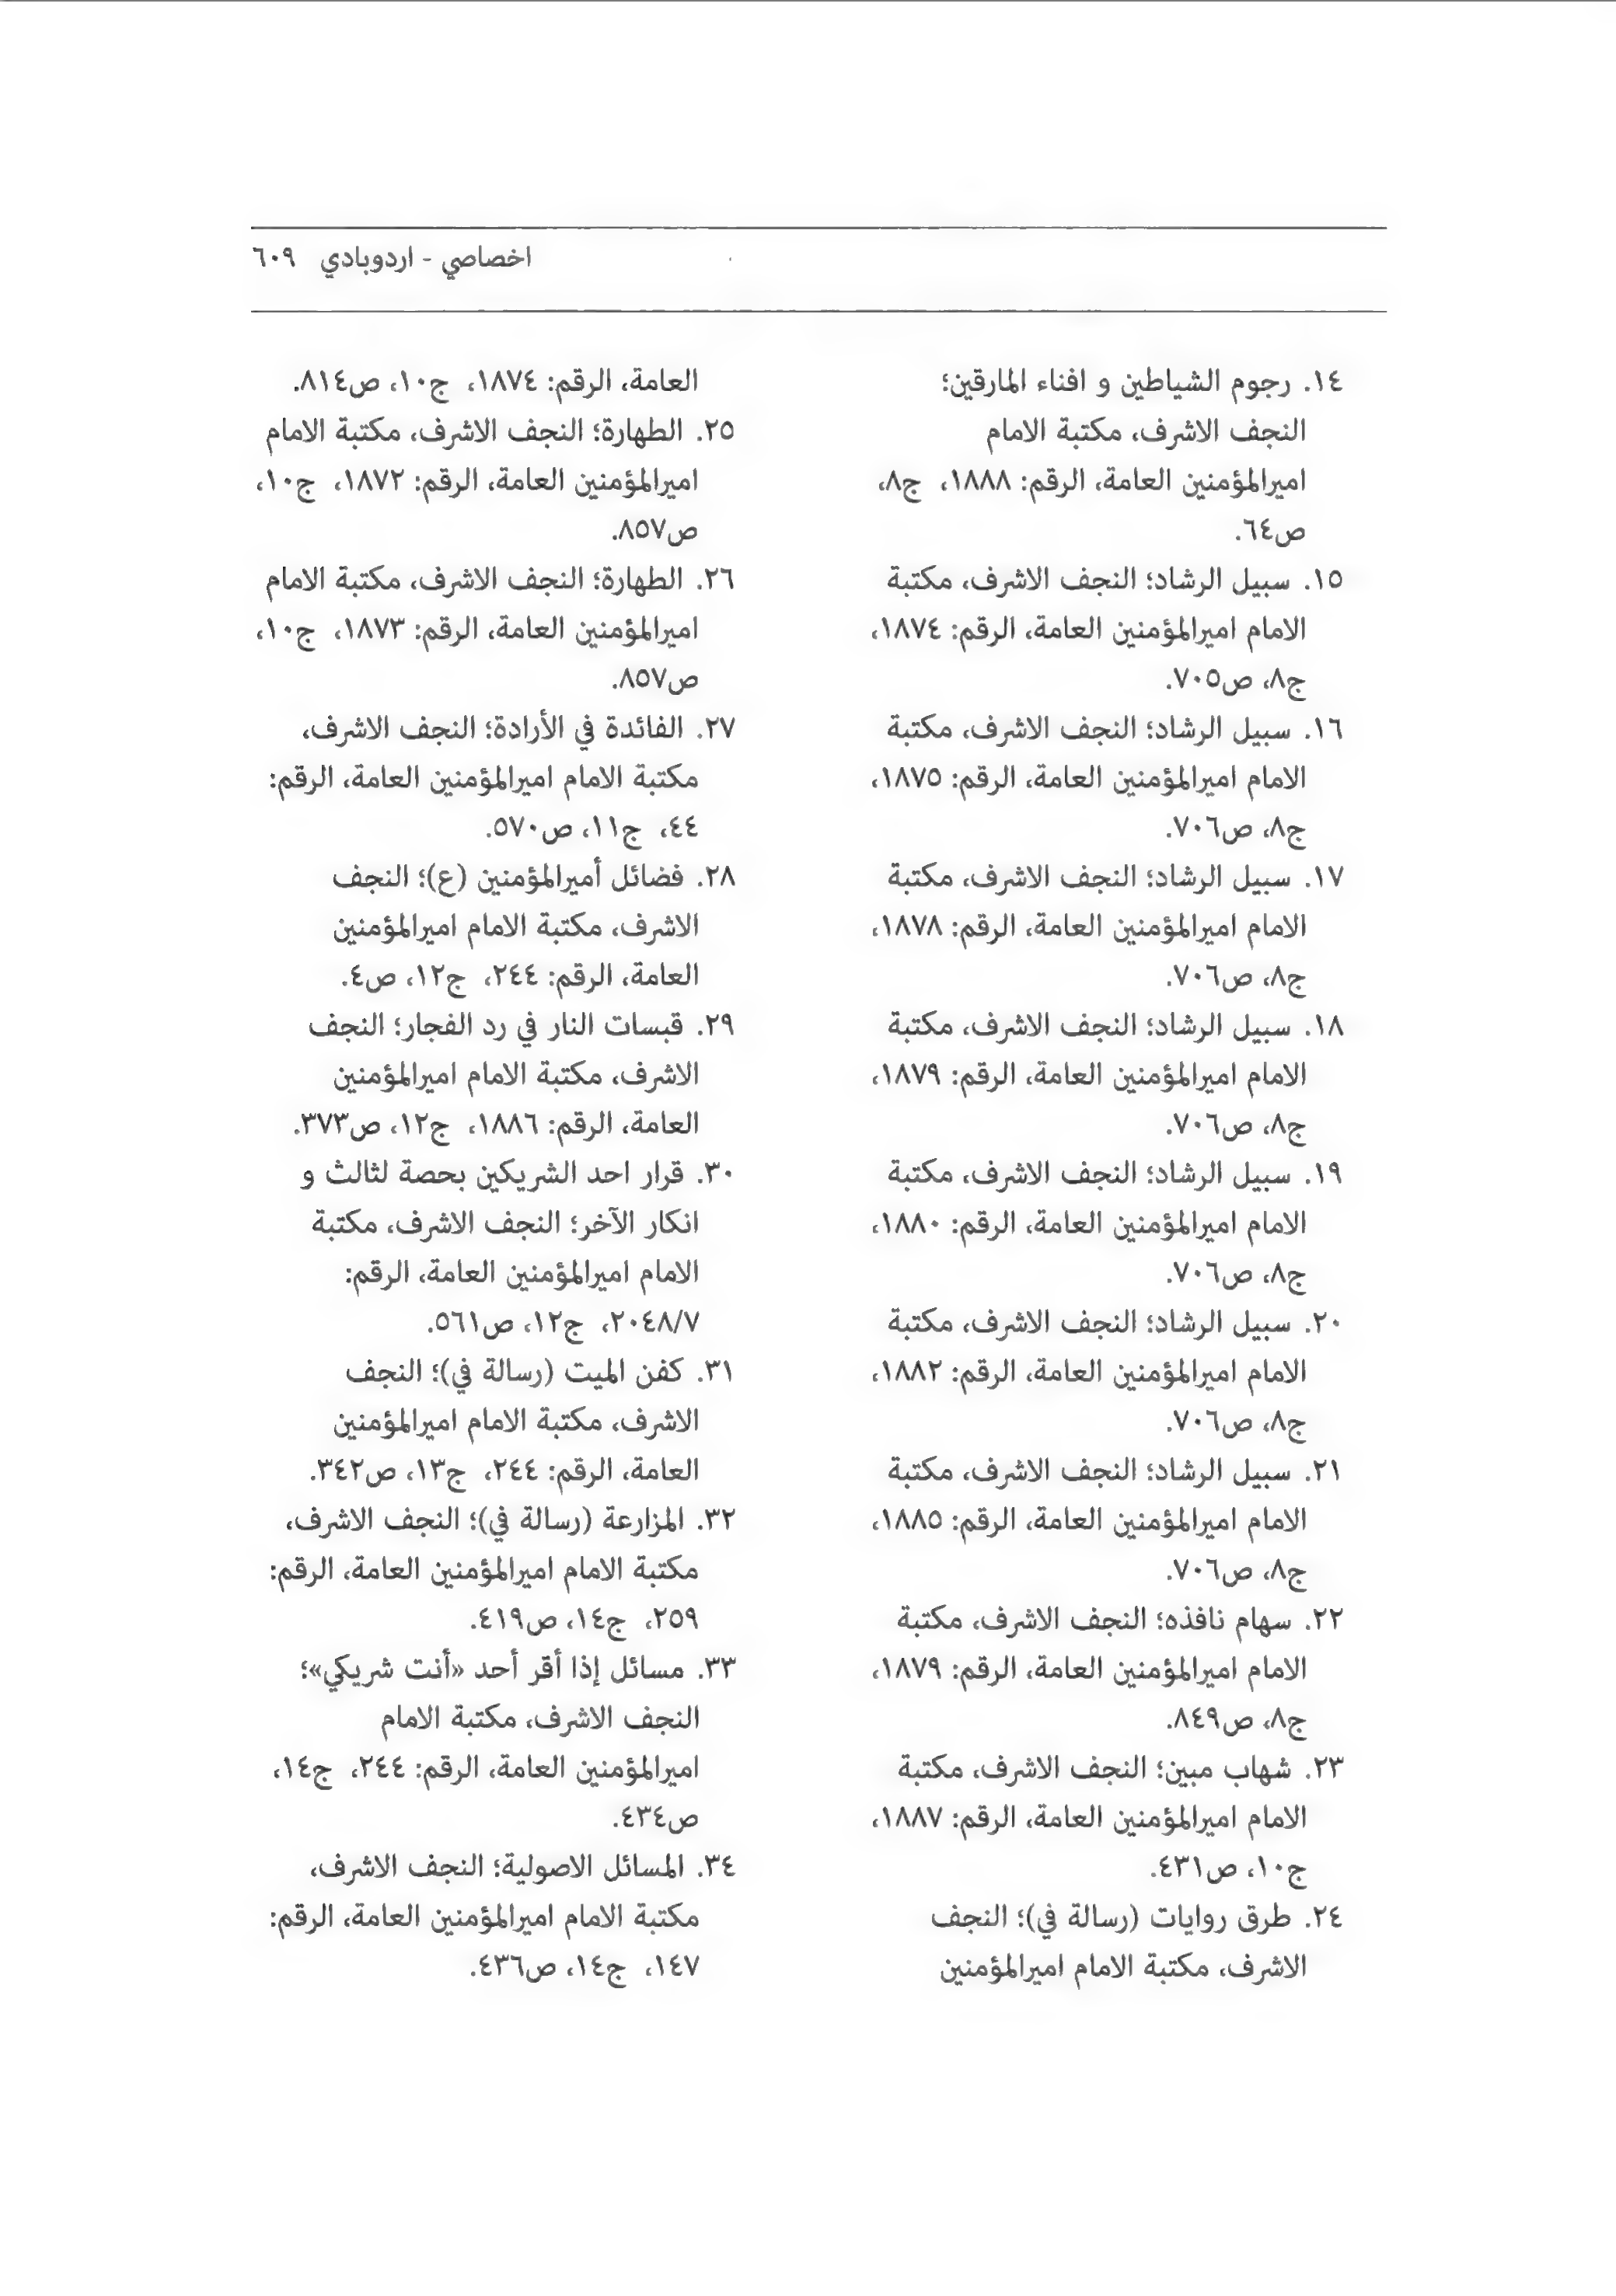 اخصاصي - اردوبادي ٦٠٩
١٤. رجوم الشياطين و افناء المارقين؛
النجف الاشرف، مكتبة الامام
اميرالمؤمنين العامة، الرقم: ١٨٨٨، ج٨،
ص٦٤.
١٥. سبيل الرشاد؛ النجف الاشرف، مكتبة
الامام اميرالمؤمنين العامة، الرقم: ١٨٧٤،
ج٨، ص٧٠٥.
١٦. سبيل الرشاد؛ النجف الاشرف، مكتبة
الامام اميرالمؤمنين العامة، الرقم: ١٨٧٥،
ج٨، ص٧٠٦.
١٧. سبيل الرشاد؛ النجف الاشرف، مكتبة
الامام اميرالمؤمنين العامة، الرقم: ١٨٧٨،
ج٨، ص٧٠٦.
١٨. سبيل الرشاد؛ النجف الاشرف، مكتبة
الامام اميرالمؤمنين العامة، الرقم: ١٨٧٩،
ج٨، ص٧٠٦.
١٩. سبيل الرشاد؛ النجف الاشرف، مكتبة
الامام اميرالمؤمنين العامة، الرقم: ١٨٨٠،
ج٨، ص٧٠٦.
٢٠. سبيل الرشاد؛ النجف الاشرف، مكتبة
الامام اميرالمؤمنين العامة، الرقم: ١٨٨٢،
ج٨، ص٧٠٦.
٢١. سبيل الرشاد؛ النجف الاشرف، مكتبة
الامام اميرالمؤمنين العامة، الرقم: ١٨٨٥،
ج٨، ص٧٠٦.
٢٢. سهام نافذه؛ النجف الاشرف، مكتبة
الامام اميرالمؤمنين العامة، الرقم: ١٨٧٩،
ج٨، ص٨٤٩.
٢٣. شهاب مبين؛ النجف الاشرف، مكتبة
الامام اميرالمؤمنين العامة، الرقم: ١٨٨٧،
ج١٠، ص٤٣١.
٢٤. طرق روايات (رسالة في)؛ النجف
الاشرف، مكتبة الامام اميرالمؤمنين
العامة، الرقم: ١٨٧٤، ج١٠، ص٨١٤.
٢٥. الطهارة؛ النجف الاشرف، مكتبة الامام
اميرالمؤمنين العامة، الرقم: ١٨٧٢، ج١٠،
ص٨٥٧.
٢٦. الطهارة؛ النجف الاشرف، مكتبة الامام
اميرالمؤمنين العامة، الرقم: ١٨٧٣، ج١٠،
ص٨٥٧.
٢٧. الفائدة في الأرادة؛ النجف الاشرف،
مكتبة الامام اميرالمؤمنين العامة، الرقم:
٤٤، ج١١، ص٥٧٠.
٢٨. فضائل أميرالمؤمنين (ع)؛ النجف
الاشرف، مكتبة الامام اميرالمؤمنين
العامة، الرقم: ٢٤٤، ج١٢، ص٤.
٢٩. قبسات النار في رد الفجار؛ النجف
الاشرف، مكتبة الامام اميرالمؤمنين
العامة، الرقم: ١٨٨٦، ج١٢، ص٣٧٣.
٣٠. قرار احد الشريكين بحصة لثالث و
انكار الآخر؛ النجف الاشرف، مكتبة
الامام اميرالمؤمنين العامة، الرقم:
٢٠٤٨/٧، ج١٢، ص٥٦١.
٣١. كفن الميت (رسالة في)؛ النجف
الاشرف، مكتبة الامام اميرالمؤمنين
العامة، الرقم: ٢٤٤، ج١٣، ص٣٤٢.
٣٢. المزارعة (رسالة في)؛ النجف الاشرف،
مكتبة الامام اميرالمؤمنين العامة، الرقم:
٢٥٩، ج١٤، ص٤١٩.
٣٣. مسائل إذا أقر أحد «أنت شريكي»؛
النجف الاشرف، مكتبة الامام
اميرالمؤمنين العامة، الرقم: ٢٤٤، ج١٤،
ص٤٣٤.
٣٤. المسائل الاصولية؛ النجف الاشرف،
مكتبة الامام اميرالمؤمنين العامة، الرقم:
١٤٧، ج١٤، ص٤٣٦.